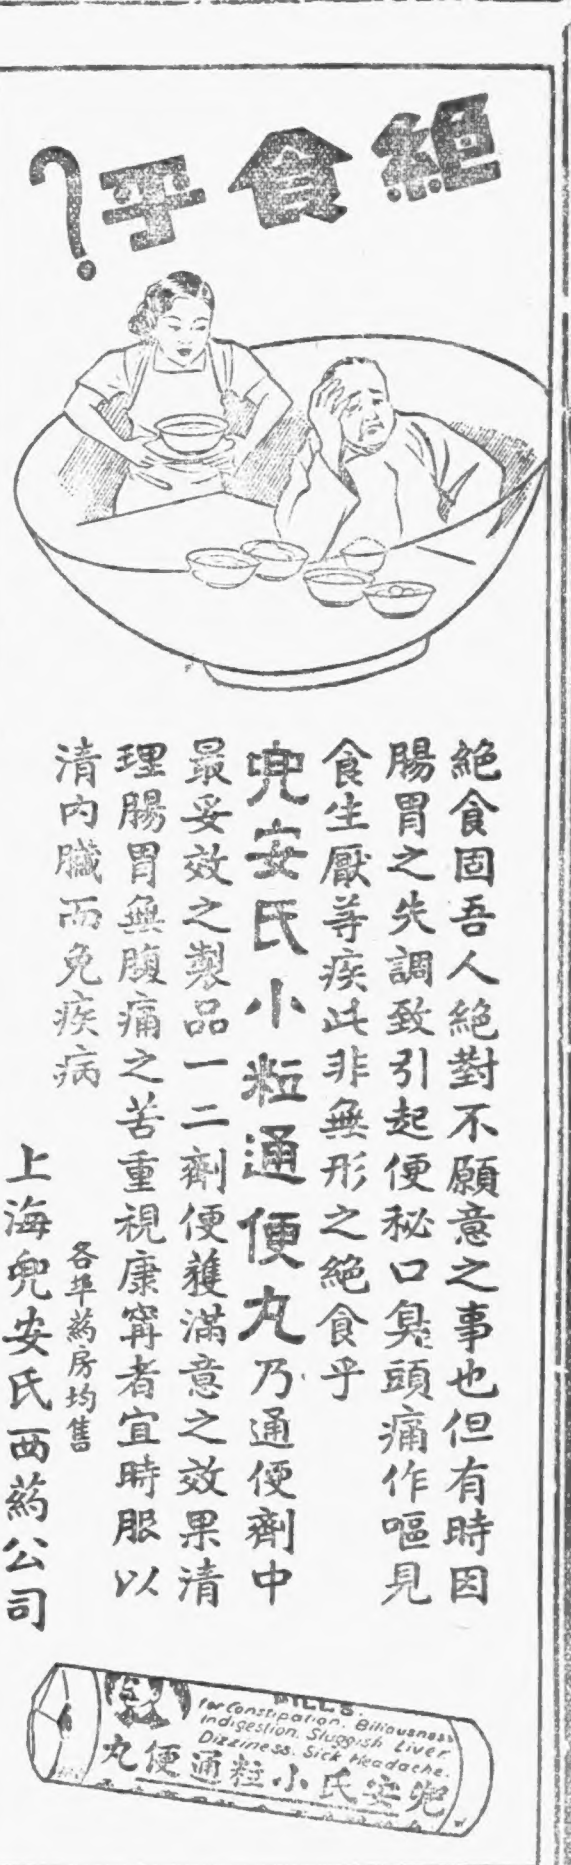 絕食乎?
絕食固吾人絕對不願意之事也但有時因
腸胃之失調致引起便秘口臭頭痛作嘔見
食生厭等疾此非無形之絕食乎
兜安氏小粒通便丸乃通便劑中
最妥效之製品一二劑便獲滿意之效果清
理腸胃無腹痛之苦重視康寧者宜時服以
清內臟而免疾病
各埠葯房均售
上海兜安氏西葯公司
PILLS.
for Constipation. Biliousness
Indigestion. Sluggish Liver.
Dizziness. Sick Headache.
兜安氏小粒通便丸